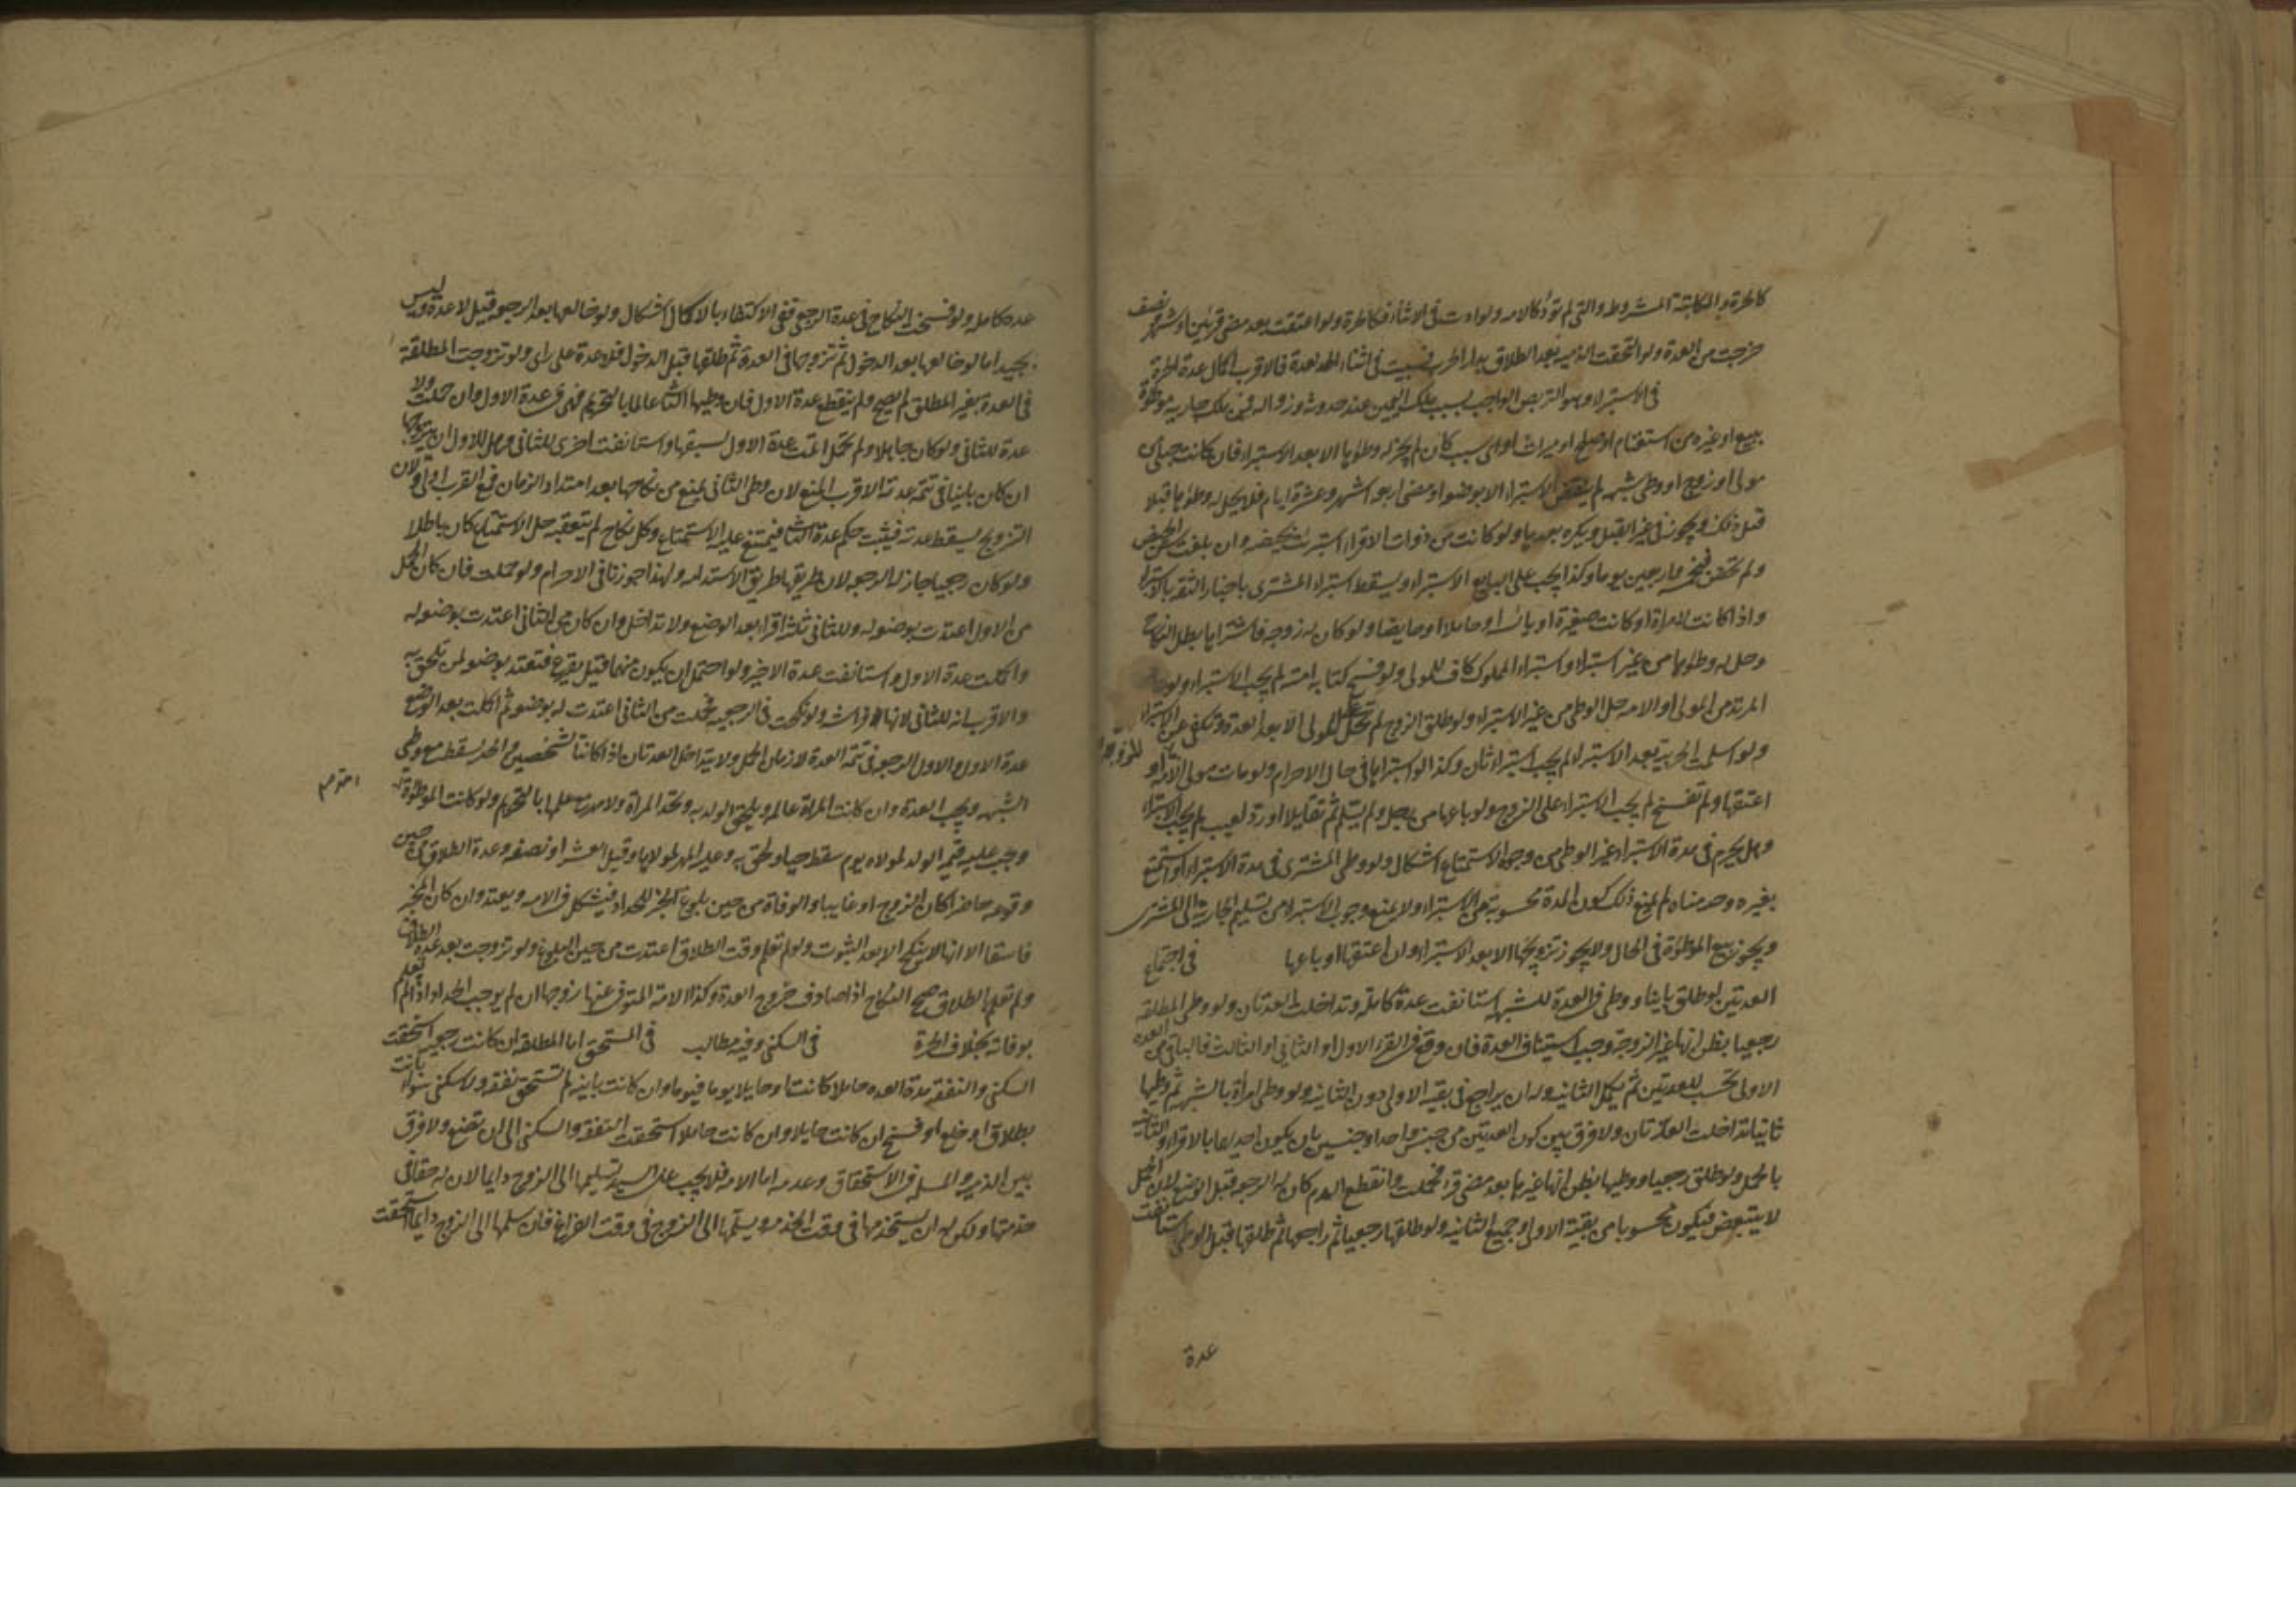 كالحرة والمكاتبة المشروطة والتي لم تؤد كالامة ولو ادت في الاثناء فكالحرة ولو اعتقت بعد مضي قرئين او شهر ونصف
خرجت من العدة ولو التحقت الذمية بعد الطلاق بدار الحرب فسبيت في اثناء العدة فالاقرب اكمال عدة الحرة
في الاستبراء وهو التربص الواجب بسبب ملك اليمين عند حدوثه وزواله فمن ملك جارية موطوءة
ببيع او غيره من استغنام او صلح او ميراث او اي سبب كان لم يجز له وطؤها الا بعد الاستبراء فان كانت حبلى من
مولى او زوج او وطي شبهة لم ينقض الاستبراء الا بوضعه او مضي اربعة اشهر وعشرة ايام فلا يحل له وطؤها قبلا
قبل ذلك ويجوز في غير القبل ويكره بعدها ولو كانت من ذوات الاقراء استبرئت بحيضة وان بلغت سن الحيض
ولم تحض فبخمسة واربعين يوما وكذا يجب على البايع الاستبراء ويسقط استبراء المشتري باخبار الثقة بالاستبراء
واذا كانت لامراة او كانت صغيرة او يائسة او حاملا او حايضا ولو كان له زوجة فاشتراها بطل النكاح
وحل له وطؤها من غير استبراء واستبراء المملوك كاف للمولى ولو فسخ كتابة امته لم يجب الاستبراء ولو عاد
المرتد من المولى او الامة حل الوطي من غير الاستبراء ولو طلق الزوج لم تحل على المولى الا بعد العدة وتكفي عن الاستبراء
ولو اسلمت الحربية بعد الاستبراء لم يجب استبراء ثان وكذا لو استبراها في حال الاحرام ولو مات مولى الامة او
للمزوجة
اعتقها ولم تفسخ لم يجب الاستبراء على الزوج ولو باعها من رجل ولم يسلم ثم تقايلا او رد لعيب لم يجب الاستبراء
وهل يحرم في مدة الاستبراء غير الوطي من وجوه الاستمتاع اشكال ولو وطي المشتري في مدة الاستبراء او استمتع
بغيره وحرمناه لم يمنع ذلك كون المدة محسوبة من الاستبراء ولا يمنع وجوب الاستبراء من تسليم الجارية الى المشتري
ويجوز بيع الموطوءة في الحال ولا يجوز تزويجها الا بعد الاستبراء وان اعتقها او باعها في اجتماع
العدتين لو طلق باينا ووطي في العدة للشبهة استانفت عدة كاملة وتداخلت العدتان ولو وطي المطلقة
رجعيا بظن انها غير الزوجة وجب استيناف العدة فان وقع في القرء الاول او الثاني او الثالث فالباقي من العدة
الاولى تحسب للعدتين ثم يكمل الثانية وله ان يراجع في بقية الاولى دون الثانية ولو وطي امرأة بالشبهة ثم وطيها
ثانيا تداخلت العدتان ولا فرق بين كون العدتين من جنس واحد او جنسين بان يكون احديهما بالاقراء والثانية
بالحمل ولو طلق رجعيا ووطيها بظن انها غيرها بعد مضي قرء فحملت وانقطع الدم كان له الرجعة قبل الوضع لان الحمل
لا يتبعض فيكون محسوبا من بقية الاولى وجميع الثانية ولو طلقها رجعيا ثم راجعها ثم طلقها قبل الوطي استانفت
عدة
عدة كاملة ولو فسخت النكاح في عدة الرجعي ففي الاكتفاء بالاكمال اشكال ولو خالعها بعد الرجعة قيل لا عدة وليس
بجيد اما لو خالعها بعد الدخول ثم تزوجها في العدة ثم طلقها قبل الدخول فلا عدة على راى ولو تزوجت المطلقة
في العدة بغير المطلق لم يصح ولم ينقطع عدة الاول فان وطيها الثاني عالما بالتحريم فهي في عدة الاول وان حملت ولا
عدة للثاني ولو كان جاهلا ولم تحمل اتمت عدة الاول لسبقها واستانفت اخرى للثاني وهل للاول ان يتزوجها
ان كان باينا في تتمة عدته الاقرب المنع لان وطي الثاني يمنع من نكاحها بعد امتداد الزمان فمع القرب اولى ولان
التزويج يسقط عدته فيثبت حكم عدة الثاني فيمتنع عليه الاستمتاع وكل نكاح لم يتعقبه حل الاستمتاع كان باطلا
ولو كان رجعيا جاز له الرجعة لان طريقها طريق الاستدامة ولهذا جوزنا في الاحرام ولو حملت فان كان الحمل
من الاول اعتدت بوضعه له وللثاني ثلثة اقراء بعد الوضع ولا تداخل وان كان من الثاني اعتدت بوضعه له
واكملت عدة الاول واستانفت عدة الاخير ولو احتمل ان يكون منهما قيل يقرع فتعتد بوضعه لمن تلحق به
والاقرب انه للثاني لانها فراشه ولو نكحت في الرجعية فحملت من الثاني اعتدت له بوضعه ثم اكملت بعد الوضع
عدة الاول وللاول الرجعة في تتمة العدة لا زمان الحمل ولا يتداخل العدتان اذا كانتا لشخصين والحد يسقط مع وطي
الشبهة ويجب العدة وان كانت المراة عالمة ويلحق الولد به وتحد المراة ولا مهر مع علمها بالتحريم ولو كانت الموطوءة
امة
وجب عليه قيمة الولد لمولاه يوم سقط حيا ولحق به وعليه المهر لمولاها وقيل العشر او نصفه وعدة الطلاق من حين
وقوعه حاضرا كان الزوج او غايبا والوفاة من حين بلوغ الخبر للحداد فيشكل في الامة ويعتد وان كان المخبر
فاسقا الا انها لا ينكح الا بعد الثبوت ولو لم تعلم وقت الطلاق اعتدت من حين البلوغ ولو تزوجت بعد عدة الطلاق
ولم تعلم بالطلاق صح النكاح اذا صادف خروج العدة وكذا الامة المتوفى عنها زوجها ان لم يوجب الحداد اذا لم تعلم
بوفاته بخلاف الحرة في السكنى وفيه مطالب في المستحق اما المطلقة ان كانت رجعية استحقت
السكنى والنفقة مدة العدة حاملا كانت او حايلا يوما فيوما وان كانت باينة لم تستحق نفقة ولا سكنى سواء بانت
بطلاق او خلع او فسخ ان كانت حايلا وان كانت حاملا استحقت النفقة والسكنى الى ان تضع ولا فرق
بين الذمية والمسلمة في الاستحقاق وعدمه اما الامة فلا يجب على السيد تسليمها الى الزوج دايما لان له حقا في
خدمتها ولكن له ان يستخدمها في وقت الخدمة ويسلمها الى الزوج في وقت الفراغ فان سلمها الى الزوج دايما استحقت